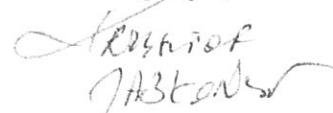 Krzysztof
Jabłoński